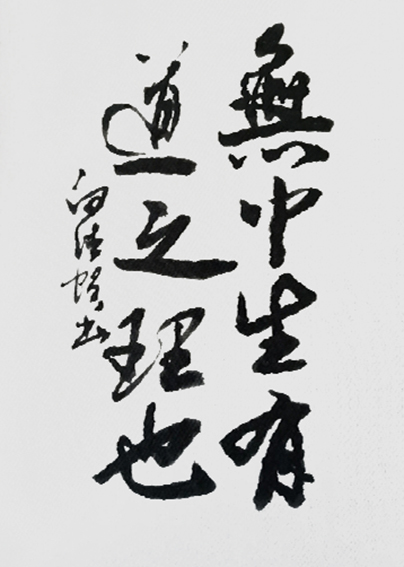 無中生有
道之理也